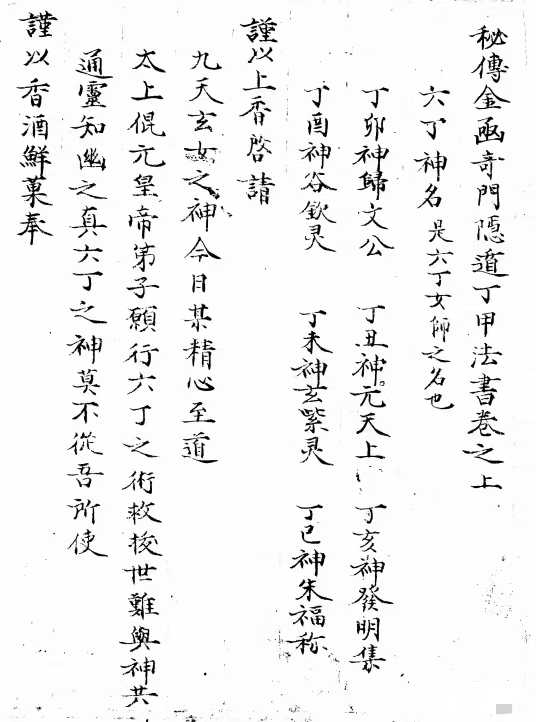 秘傳金函奇門隱遁丁甲法書卷之上
六丁神名 是六丁女師之名也
丁卯神歸文公 丁丑神元天上 丁亥神發明集
丁酉神谷欽灵 丁未神玄紫灵 丁巳神朱福称
謹以上香啓請
九天玄女之神今日某精心至道
太上混元皇帝弟子願行六丁之術救拔世難與神共
通靈知幽之真六丁之神莫不從吾所使
謹以香酒鮮菓奉